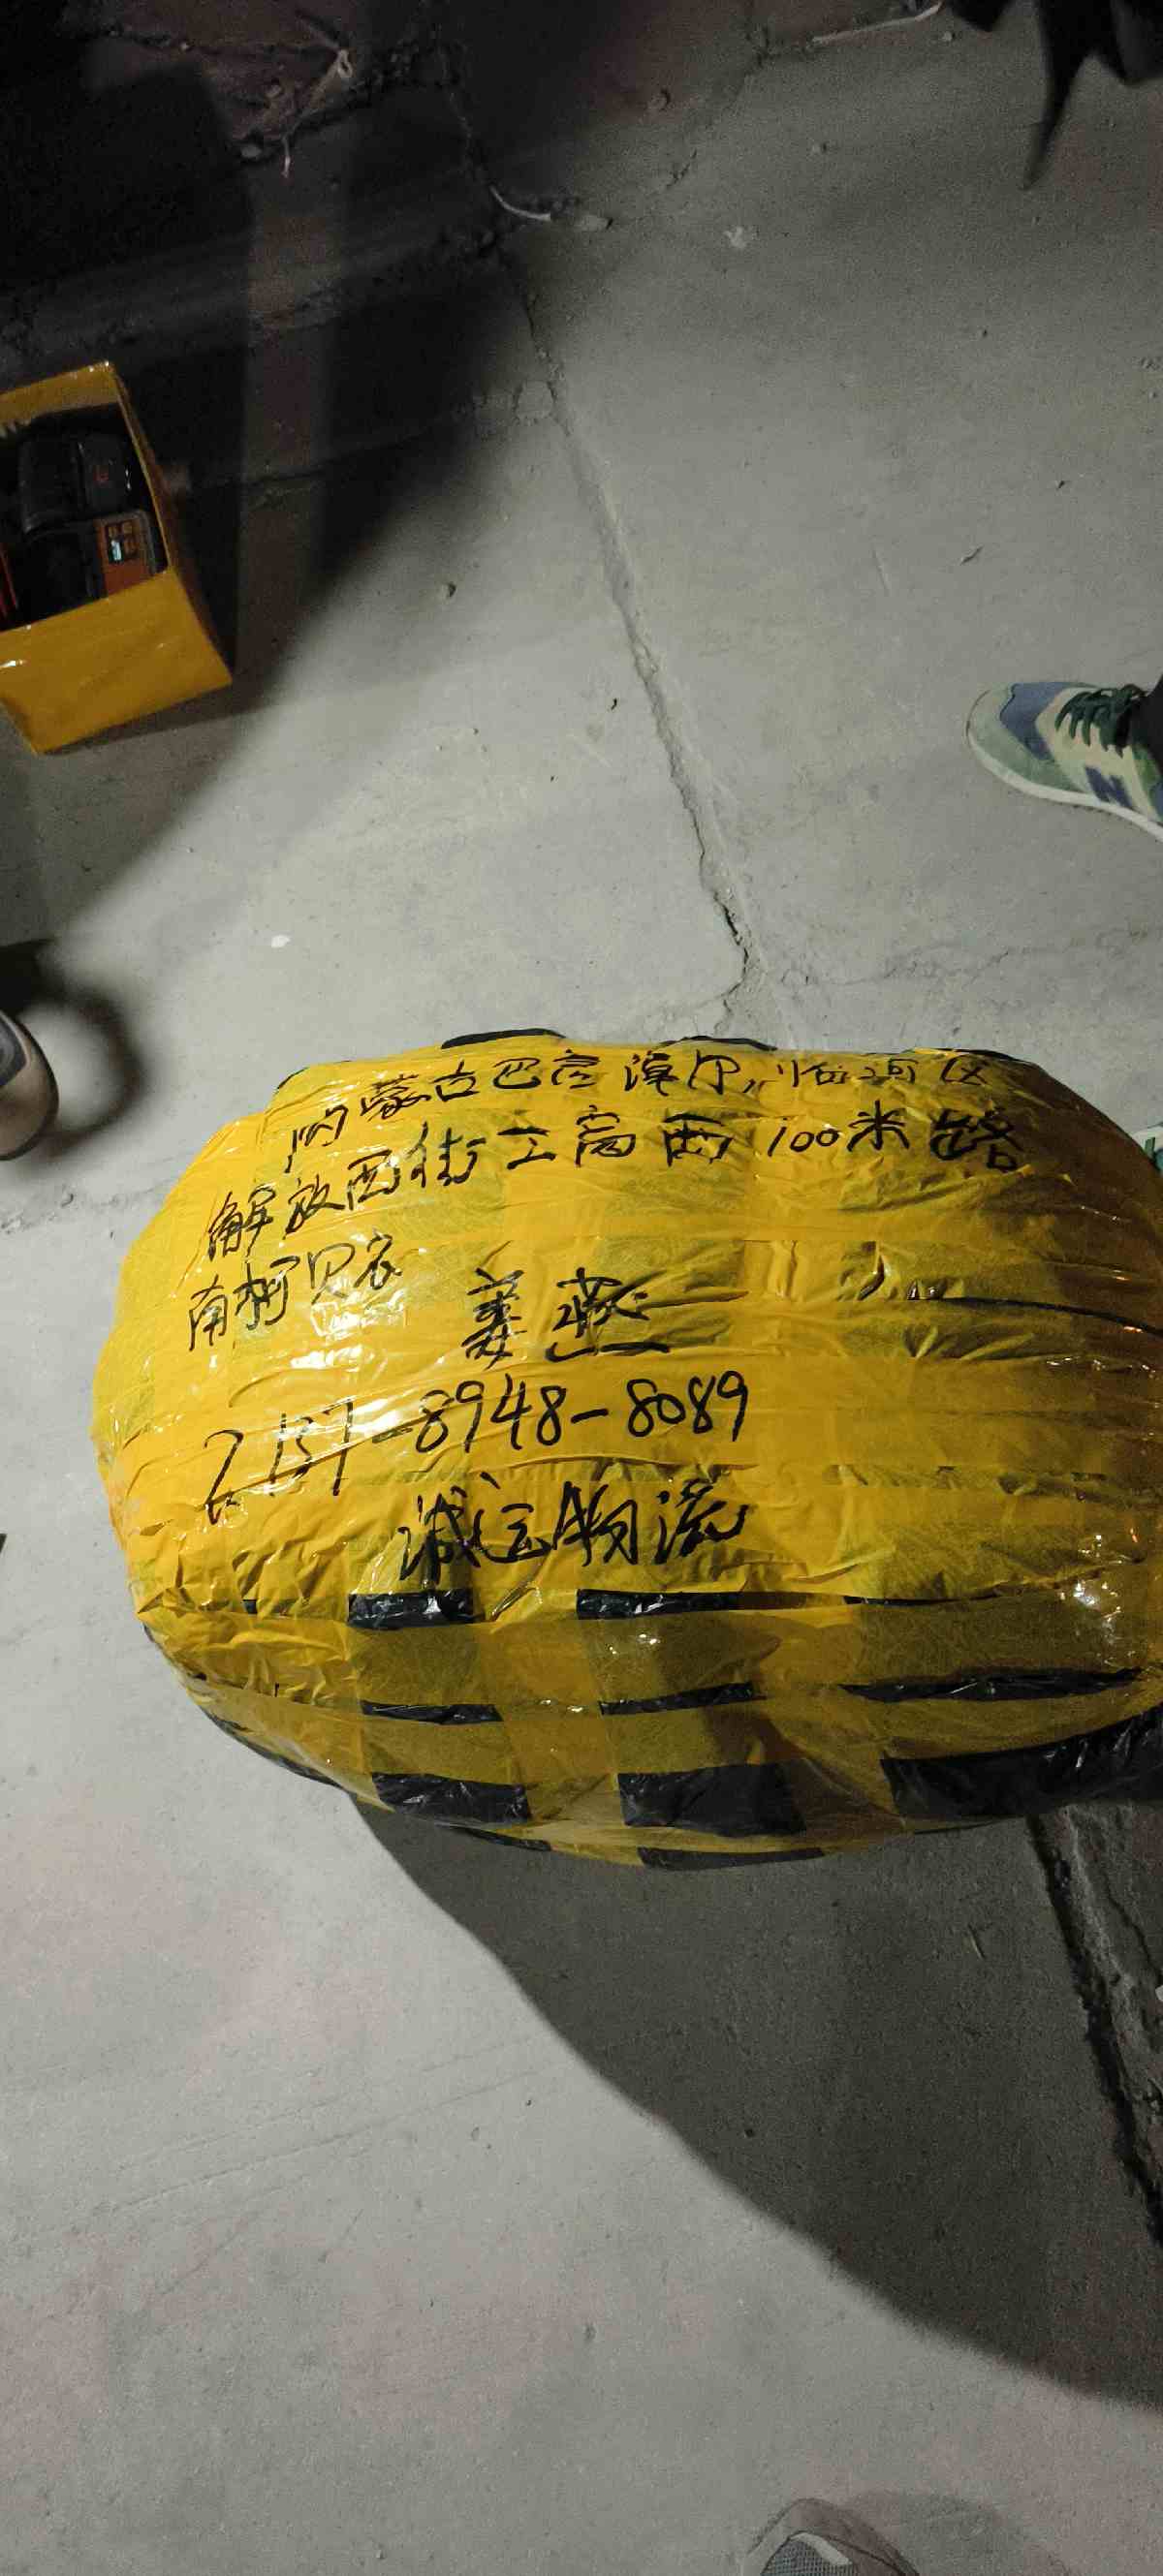 内蒙古巴彦淖尔,临河区
解放西街工商西100米路
南柯贝衣
姜燕
137-8948-8089
诚运物流
N